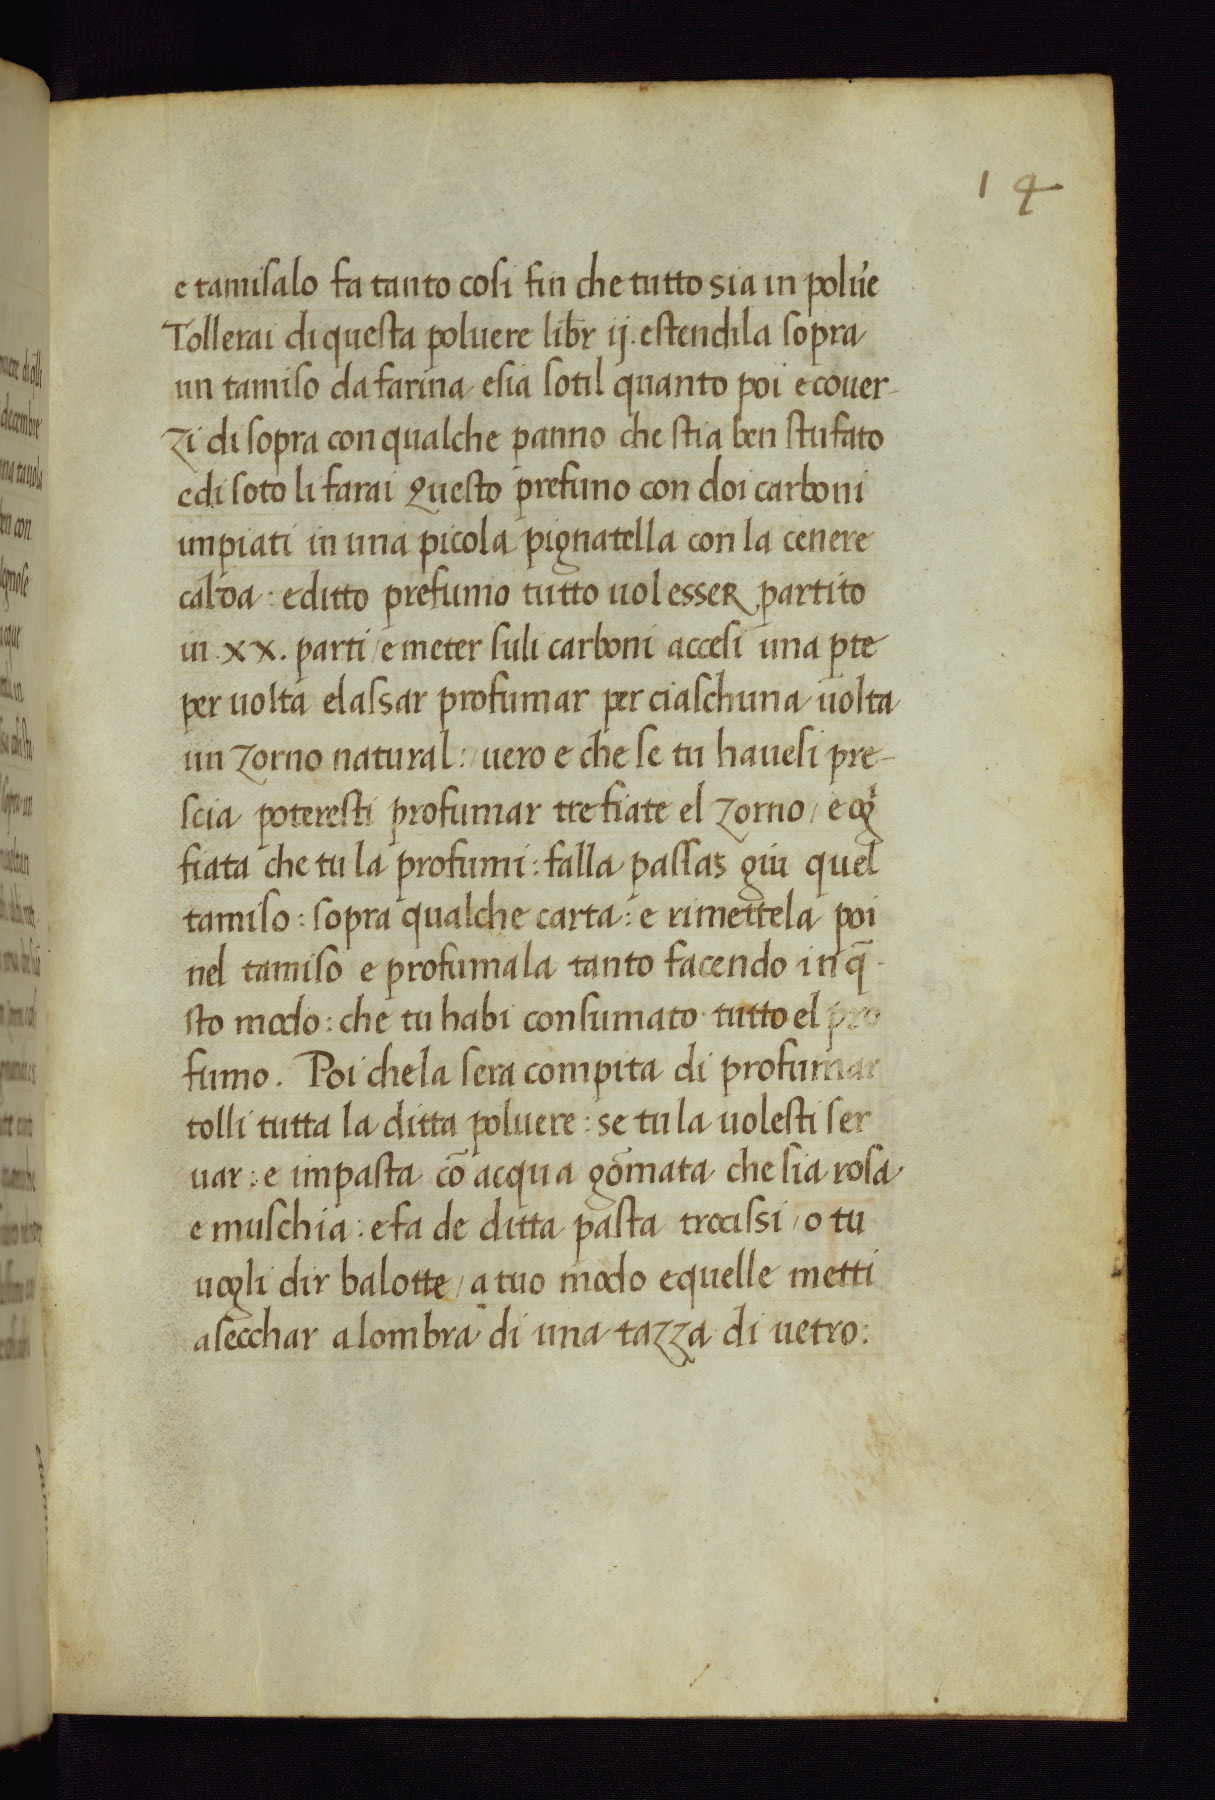 14
e tamisalo fa tanto cosi fin che tutto sia in polu'e
Tollerai di questa poluere libr ij. estendila sopra
un tamiso da farina esia sotil quanto poi e couer-
zi di sopra con qualche panno che stia ben stufato
edi soto li farai Questo prefuno con doi carboni
impiati in una picola pignatella con la cenere
calda : editto prefumo tutto uol esser partito
in .xx. parti / e meter suli carboni accesi una pte
per uolta elassar profumar per ciaschuna uolta
un zorno natural : uero e che se tu hauesi pre-
scia poteresti profumar tre fiate el zorno / e og
fiata che tu la profumi : falla passas giu quel
tamiso : sopra qualche carta : e rimettela poi
nel tamiso e profumala tanto facendo in q̄-
sto modo : che tu habi consumato tutto el pro
fumo . Poi chela sera compita di profumar
tolli tutta la ditta poluere : se tu la uolesti ser
uar : e impasta cō acqua gōmata che sia rosa
e muschia : e fa de ditta pasta trocissi / o tu
uogli dir balotte / a tuo modo equelle metti
asecchar alombra di una tazza di uetro :